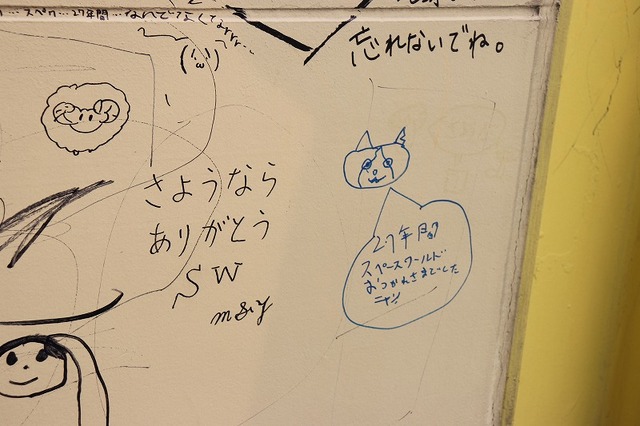 スペワ…27年間…なんで
忘れないでね。
さようなら
ありがとう
SW
m&y
27年間
スペースワールド
おつかれさまでした
ニャン